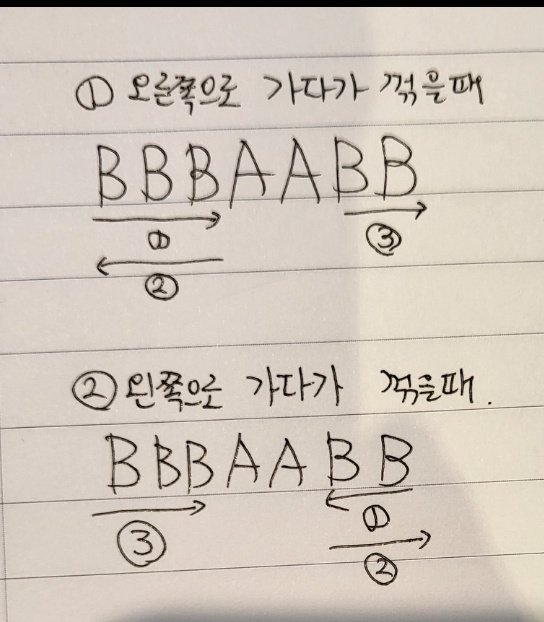 ① 오른쪽으로 가다가 꺾을때
BBBAABB
① ③
②
②왼쪽으로 가다가 꺾을때.
BBBAABB
③ ①
②